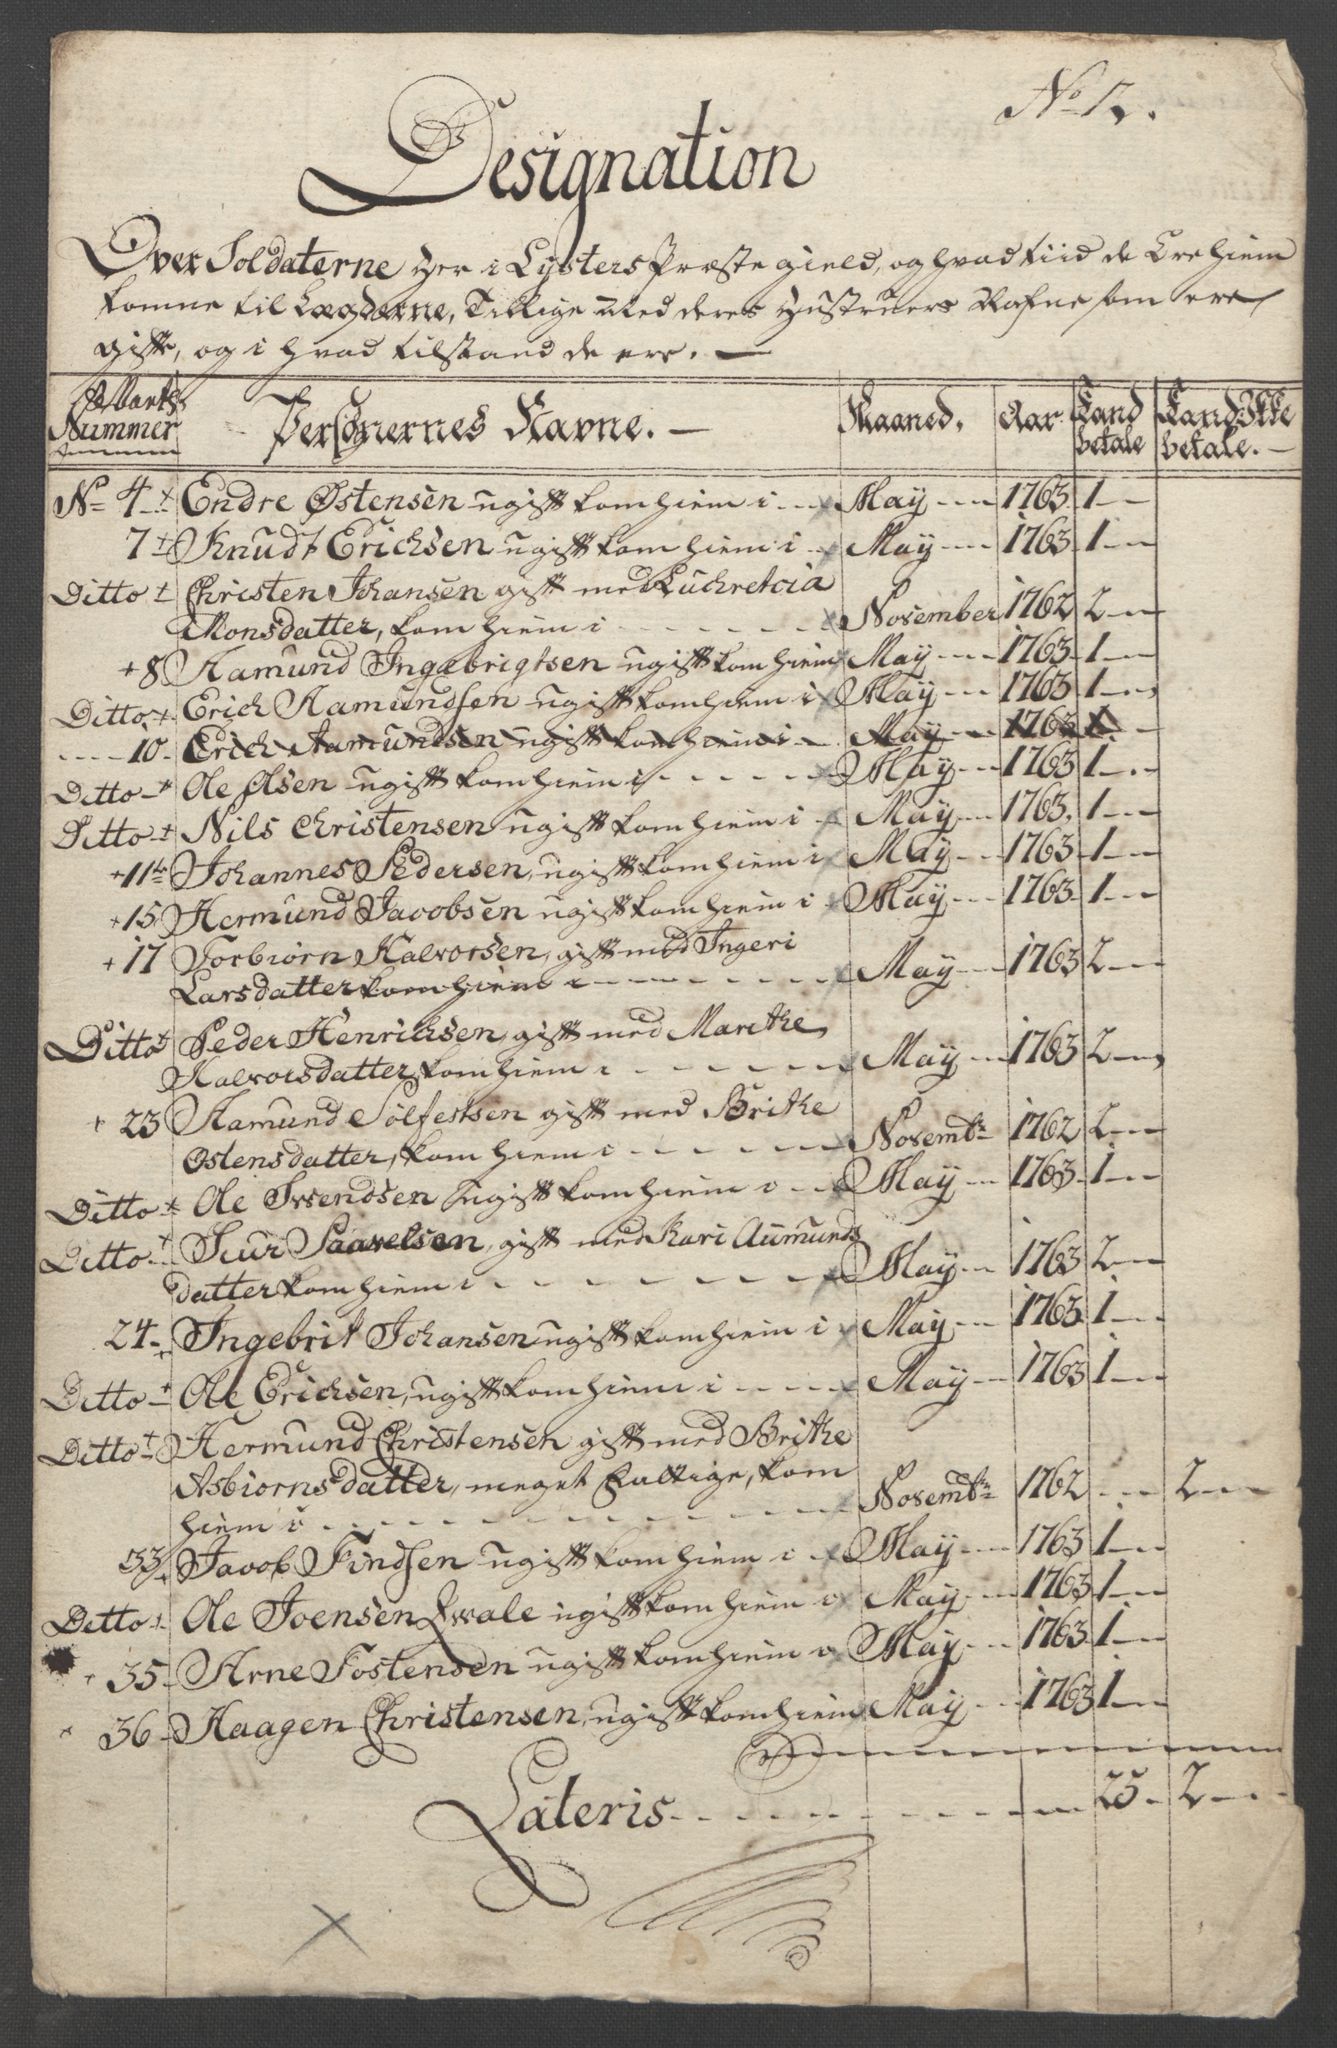 No 12.
Designation
Over Soldaterne her i Lysters Præstegield, og hvad tiid de Ere hiem
komne til Lægderne, Tillige Med deres Hustruers Nafne som ere
gifte, og i hvad tilstand de ere. —
Nummer Personernes Navne. — Maaned. Aar Kand betale Kand Ikke betale. —
No 4 + Endre Østensen ugift kom hiem i May 1763 1
7 + Knudt Erichsen ugift kom hiem i May 1763 1
Ditto + Christen Johansen gift med Luchretcia
Monsdatter, kom hiem i November 1762 2
+ 8 Aamund Ingebrigtsen ugift kom hiem May 1763 1
Ditto + Erich Aamundsen ugift kom hiem i May 1763 1
10 Erich Aamundsen ugift kom hiem i May 1763 1
Ditto + Ole Olsen ugift kom hiem i May 1763 1
Ditto + Nils Christensen ugift kom hiem i May 1763. 1
+ 11 Johannes Pedersen, ugift kom hiem i May 1763 1
+ 15 Hermund Jacobsen ugift kom hiem i May 1763 1
+ 17 Torbiørn Halvorsen, gift med Ingeri
Larsdatter kom hiem i May 1763 2
Ditto + Peder Henrichsen, gift med Marethe
Halvorsdatter, kom hiem i May 1763 2
+ 23 Aamund Sølfestsen gift med Brithe
Ostensdatter, kom hiem i Novembr 1762 2
Ditto + Ole Svendsen ugift kom hiem i May 1763 1
Ditto + Siur Paavelsen, gift med Kari Aumunds
datter kom hiem i May 1763 2
24 + Ingebrit Johansen ugift kom hiem i May 1763 1
Ditto + Ole Erichsen, ugift kom hiem i May 1763 1
Ditto + Hermund Christensen gift med Brithe
Asbiornsdatter, meget fattige, kom
hiem i Novembr 1762 2
33 + Jacob Findsen ugift kom hiem i May 1763 1
Ditto + Ole Joensen Qvale ugift kom hiem i May 1763 1
+ 35 Arne Tostensen ugift kom hiem i May 1763 1
+ 36 Haagen Christensen, ugift kom hiem May 1763 1
Lateris 25 2